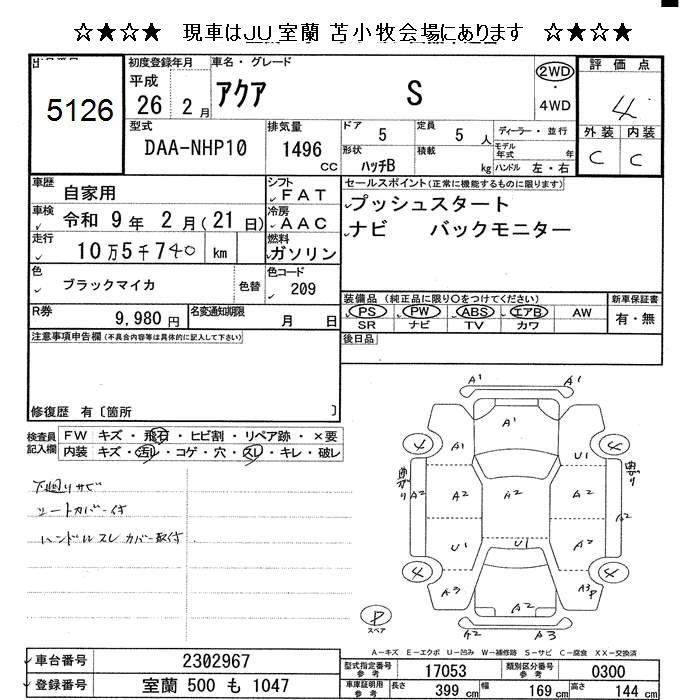 ☆★☆★ 現車はJU室蘭 苫小牧会場にあります ☆★☆★
5126
初度登録年月
平成
26 2月
車名・グレード
アクア S
2WD
・
4WD
評価点
4
外装 内装
C C
型式
DAA-NHP10
排気量
1496
CC
ドア
5
定員
5 人
形状
ハッチB
積載
kg
ディーラー・並行
モデル年式 年
ハンドル 左・右
車歴
自家用
車検
令和 9 年 2 月(21 日)
走行
10万5千740 km
色
ブラックマイカ
色替
シフト
FAT
冷房
AAC
燃料
ガソリン
色コード
209
セールスポイント(正常に機能するものに限ります)
プッシュスタート
ナビ バックモニター
R券
9,980 円
名変通知期限
月 日
装備品(純正品に限り○をつけてください)
PS PW ABS エアB AW
SR ナビ TV カワ
新車保証書
有・無
後日品
注意事項申告欄(不具合内容等は具体的に記入して下さい)
修復歴 有〔箇所 〕
検査員
記入欄
FW キズ・飛石・ヒビ割・リペア跡・×要
内装 キズ・汚レ・コゲ・穴・スレ・キレ・破レ
下廻リサビ
シートカバー付
ハンドルスレ カバー取付
A1 A1
A1
4 A1 U1 4
A2 A2 A2 A2 A2
U1 U1 A2
4 A3 A3P 4
A2
A2 A3
P
スペア
A－キズ E－エクボ U－凹み W－補修跡 S－サビ C－腐食 XX－交換済
車台番号 2302967
登録番号 室蘭 500 も 1047
型式指定番号
参考
17053
類別区分番号
参考
0300
車庫証明用
参考
長さ 399 cm
幅 169 cm
高さ 144 cm